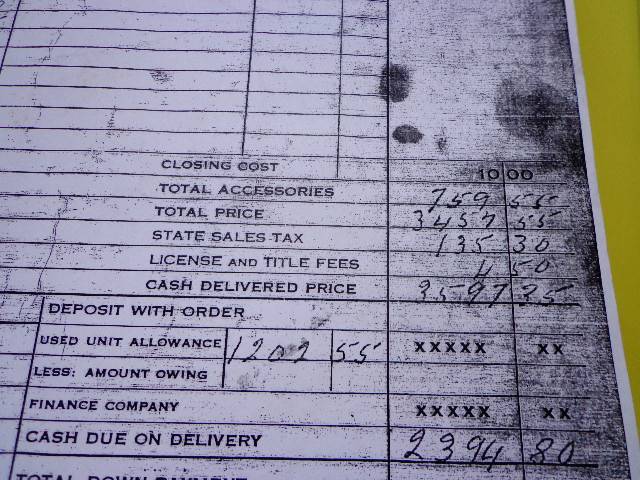 CLOSING COST 10 00
TOTAL ACCESSORIES 759 55
TOTAL PRICE 3457 55
STATE SALES TAX 135 30
LICENSE AND TITLE FEES 4 50
CASH DELIVERED PRICE 3597 35
DEPOSIT WITH ORDER
USED UNIT ALLOWANCE 1202 55 XXXXX XX
LESS: AMOUNT OWING
FINANCE COMPANY XXXXX XX
CASH DUE ON DELIVERY 2394 80
TOTAL DOWN PAYMENT